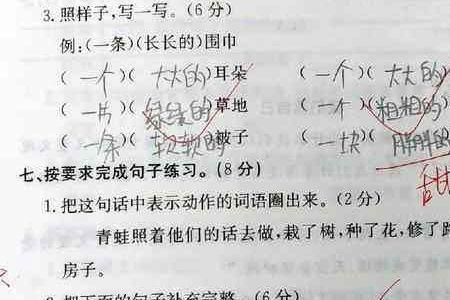 3.照样子,写一写。(6分)
例:(一条)(长长的)围巾
(一个)(大大的)耳朵 (一个)(大大的)
(一片)(绿绿的)草地 (一个)(粗粗的)
(一条)(软软的)被子 (一块)(胖胖的)
甜
七、按要求完成句子练习。(8分)
1.把这句话中表示动作的词语圈出来。(2分)
青蛙照着他们的话去做,栽了树,种了花,修了
房子。
2.把下面的句子补充完整。(6分)